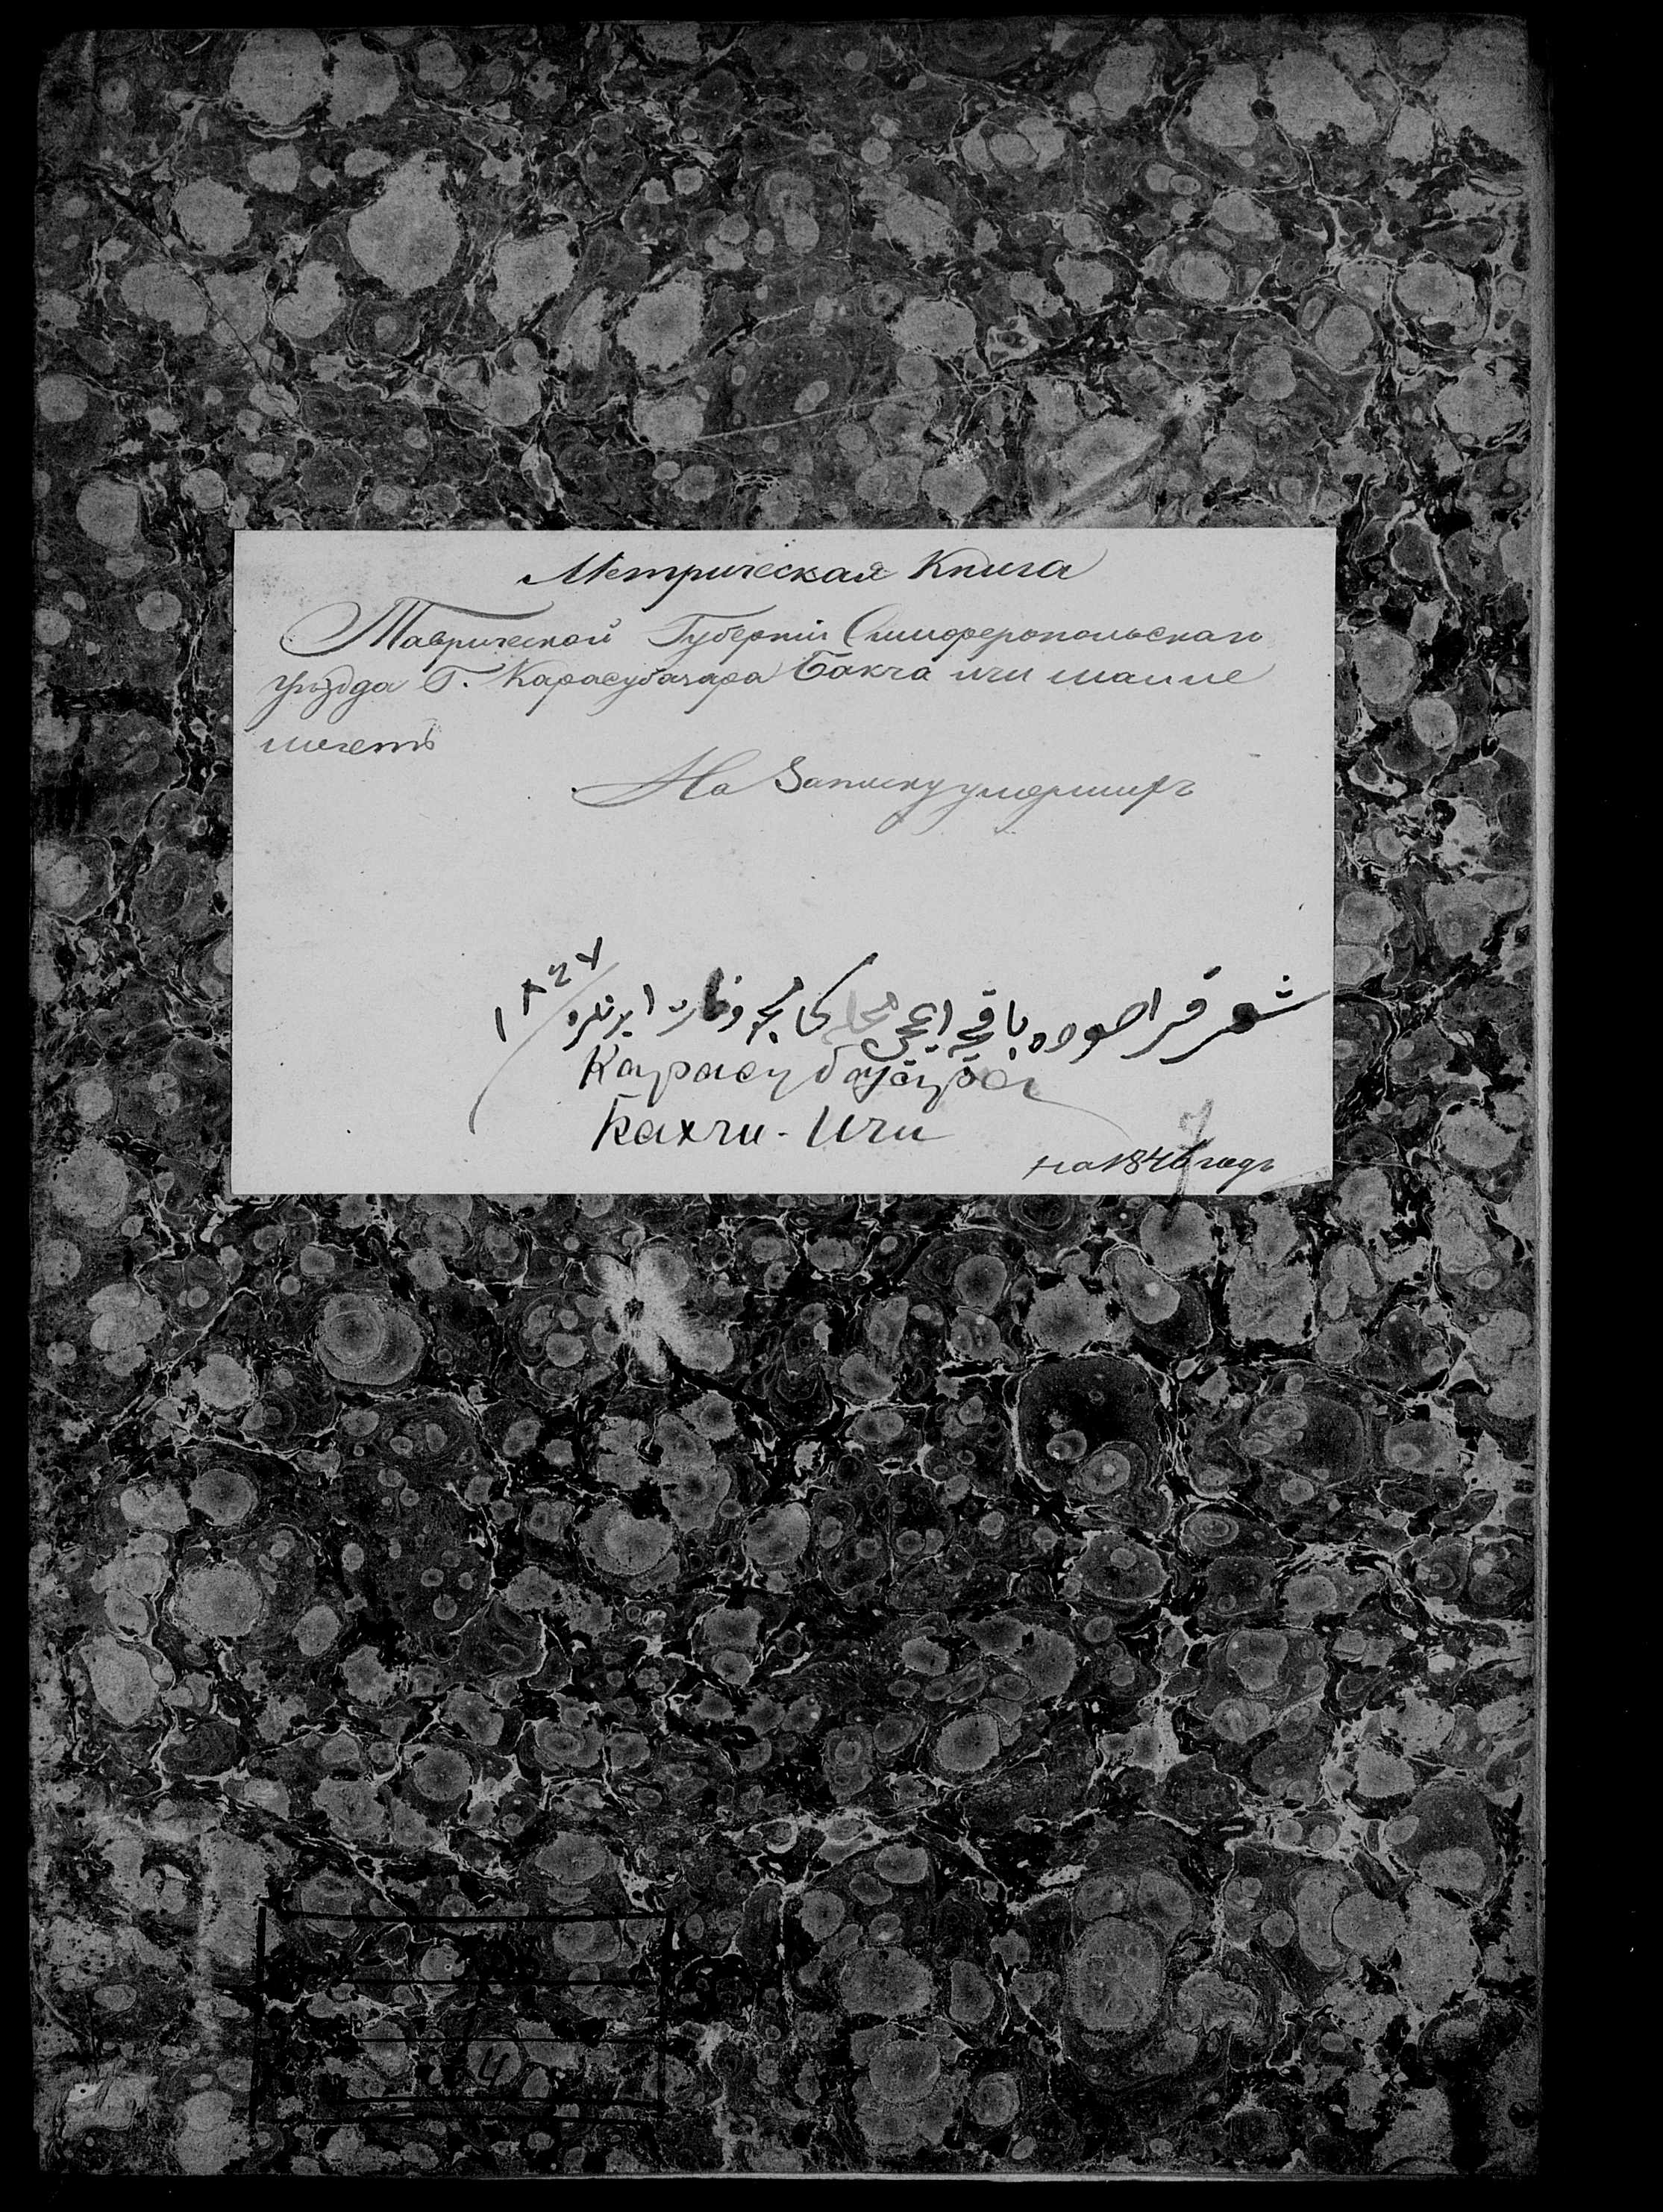 Метрическая Книга
Таврической Губерніи Симферопольскаго
уѣзда Г. Карасубазара Бакча ичи
мечеть
На Записку умершихъ
١٨٤٧
شهر قراصو ده باقچه ایچی محله
Карасубазара
Бахчи-Ичи
на 1847 годъ
4